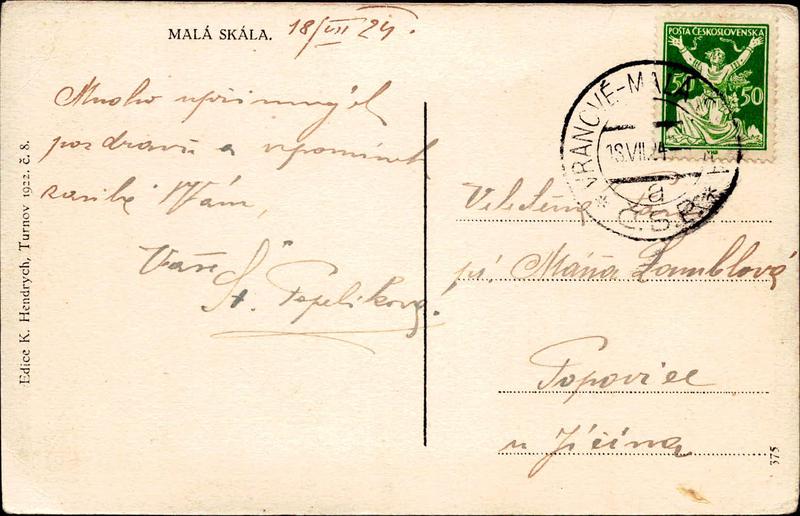 MALÁ SKÁLA.
18/VII 24.
Mnoho upřimných
pozdravů a vpomínek
zasílá Vám,
Vaše
St. Popelíkova.
Edice K. Hendrych, Turnov 1922. č. 8.
POŠTA ČESKOSLOVENSKÁ
50 50
VRANOVÉ-MALÁ
18.VII.24
a
Č.S.R.
Velectěná
pí, Máňa Lamblová
Popovice
u Jičína
375